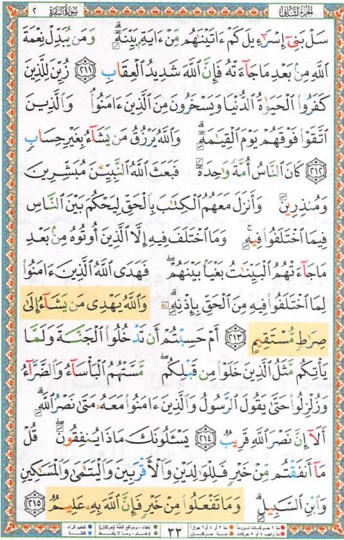 الجزء الثاني سورة البقرة ٢
سَلْ بَنِىٓ إِسْرَٰٓءِيلَ كَمْ ءَاتَيْنَٰهُم مِّنْ ءَايَةٍۭ بَيِّنَةٍۗ وَمَن يُبَدِّلْ نِعْمَةَ
ٱللَّهِ مِنۢ بَعْدِ مَا جَآءَتْهُ فَإِنَّ ٱللَّهَ شَدِيدُ ٱلْعِقَابِ ٢١١ زُيِّنَ لِلَّذِينَ
كَفَرُوا۟ ٱلْحَيَوٰةُ ٱلدُّنْيَا وَيَسْخَرُونَ مِنَ ٱلَّذِينَ ءَامَنُوا۟ۘ وَٱلَّذِينَ
ٱتَّقَوْا۟ فَوْقَهُمْ يَوْمَ ٱلْقِيَٰمَةِۗ وَٱللَّهُ يَرْزُقُ مَن يَشَآءُ بِغَيْرِ حِسَابٍ
٢١٢ كَانَ ٱلنَّاسُ أُمَّةً وَٰحِدَةً فَبَعَثَ ٱللَّهُ ٱلنَّبِيِّـۧنَ مُبَشِّرِينَ
وَمُنذِرِينَ وَأَنزَلَ مَعَهُمُ ٱلْكِتَٰبَ بِٱلْحَقِّ لِيَحْكُمَ بَيْنَ ٱلنَّاسِ
فِيمَا ٱخْتَلَفُوا۟ فِيهِۚ وَمَا ٱخْتَلَفَ فِيهِ إِلَّا ٱلَّذِينَ أُوتُوهُ مِنۢ بَعْدِ
مَا جَآءَتْهُمُ ٱلْبَيِّنَٰتُ بَغْيًۢا بَيْنَهُمْۖ فَهَدَى ٱللَّهُ ٱلَّذِينَ ءَامَنُوا۟
لِمَا ٱخْتَلَفُوا۟ فِيهِ مِنَ ٱلْحَقِّ بِإِذْنِهِۦۗ وَٱللَّهُ يَهْدِى مَن يَشَآءُ إِلَىٰ
صِرَٰطٍ مُّسْتَقِيمٍ ٢١٣ أَمْ حَسِبْتُمْ أَن تَدْخُلُوا۟ ٱلْجَنَّةَ وَلَمَّا
يَأْتِكُم مَّثَلُ ٱلَّذِينَ خَلَوْا۟ مِن قَبْلِكُمۖ مَّسَّتْهُمُ ٱلْبَأْسَآءُ وَٱلضَّرَّآءُ
وَزُلْزِلُوا۟ حَتَّىٰ يَقُولَ ٱلرَّسُولُ وَٱلَّذِينَ ءَامَنُوا۟ مَعَهُۥ مَتَىٰ نَصْرُ ٱللَّهِۗ
أَلَآ إِنَّ نَصْرَ ٱللَّهِ قَرِيبٌ ٢١٤ يَسْـَٔلُونَكَ مَاذَا يُنفِقُونَۖ قُلْ
مَآ أَنفَقْتُم مِّنْ خَيْرٍ فَلِلْوَٰلِدَيْنِ وَٱلْأَقْرَبِينَ وَٱلْيَتَٰمَىٰ وَٱلْمَسَٰكِينِ
وَٱبْنِ ٱلسَّبِيلِۗ وَمَا تَفْعَلُوا۟ مِنْ خَيْرٍ فَإِنَّ ٱللَّهَ بِهِۦ عَلِيمٌ ٢١٥
٣٣